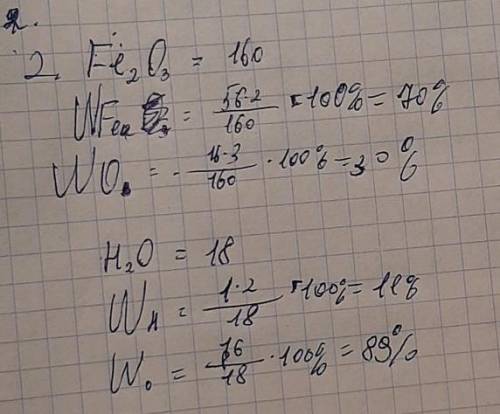 2.
2. Fe₂O₃ = 160
WFe = 56·2/160 · 100% = 70%
WO = 16·3/160 · 100% = 30%
H₂O = 18
W_H = 1·2/18 · 100% = 11%
W_O = 16/18 · 100% = 89%